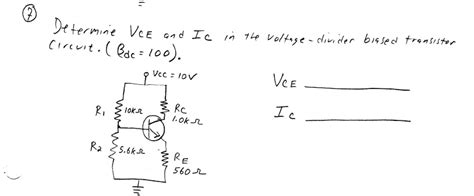 7
Determine VCE and IC in the voltage-divider biased transistor
circuit. (βdc = 100).
VCC = 10V
VCE
R1 10KΩ RC
1.0KΩ
IC
R2 5.6KΩ RE
560Ω